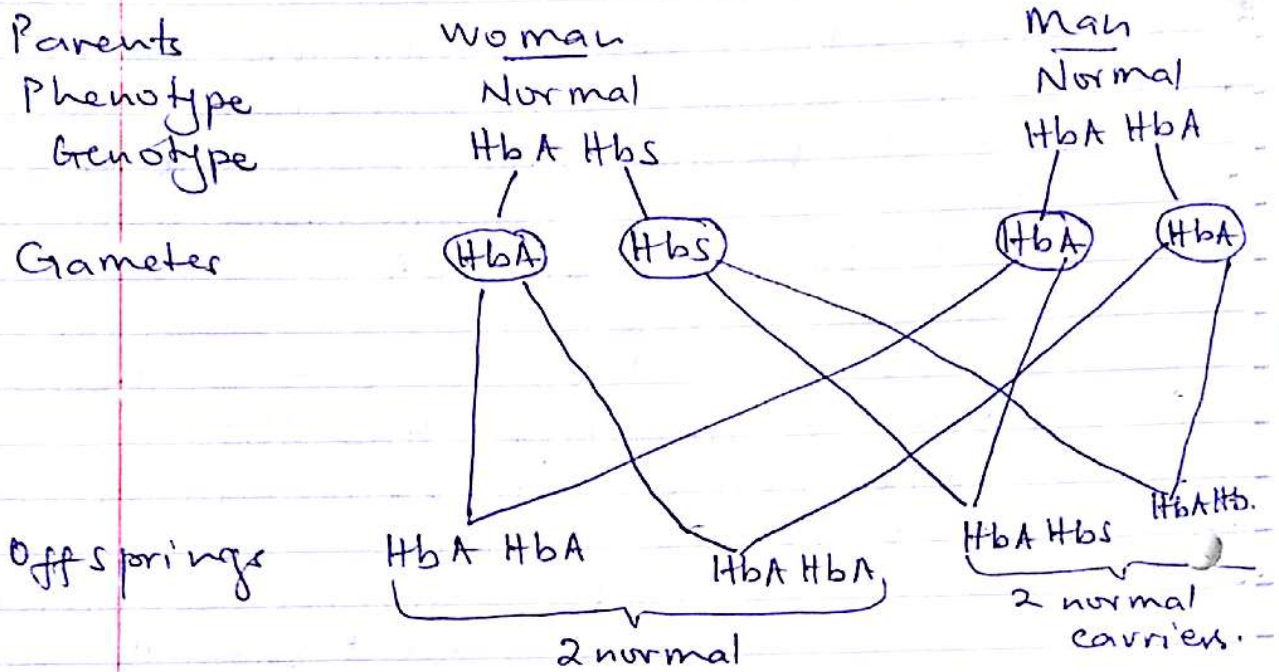 Parents Woman Man
Phenotype Normal Normal
Genotype HbA Hbs HbA HbA
Gametes HbA Hbs HbA HbA
Offsprings HbA HbA HbA HbA HbA Hbs HbA Hb.
2 normal 2 normal
carriers.